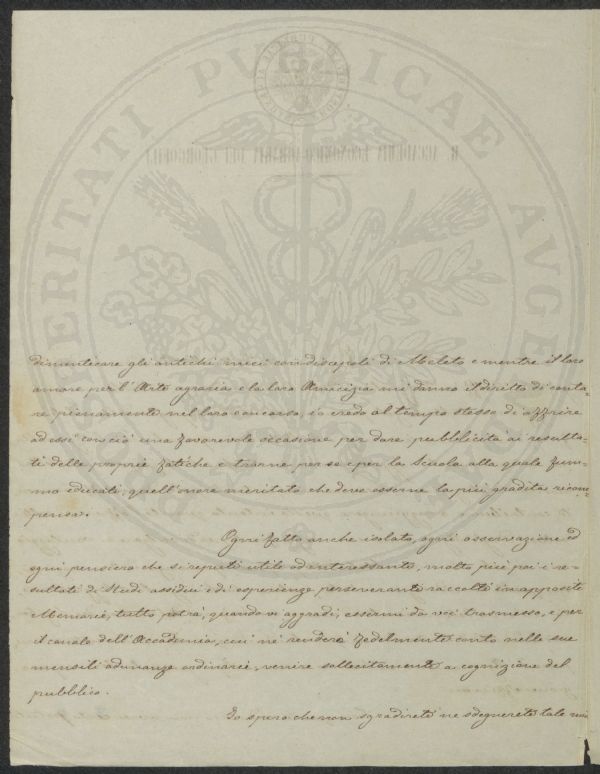 PROSPERITATI PUBLICAE AUGENDAE
R. ACCADEMIA ECONOMICO-AGRARIA DEI GEORGOFILI
dimenticare gli antichi miei condiscepoli di Meleto e mentre il loro
amore per l'Arte agraria e la loro Amicizia mi danno il diritto di conta=
re pienamente nel loro concorso, io credo al tempo stesso di offrire
ad essi con ciò una favorevole occasione per dare pubblicità ai resulta=
ti delle proprie fatiche e trarne per se e per la Scuola alla quale fum=
mo educati, quell'onore meritato che deve esserne la più gradita ricom=
pensa.
Ogni fatto anche isolato, ogni osservazione ed
ogni pensiero che si reputi utile ed interessante, molto più poi i re=
sultati di Studi assidui e di esperienze perseveranti raccolti in apposite
Memorie, tutto potrà, quando vi aggradi, essermi da voi trasmesso, e per
il canale dell'Accademia, cui ne renderò fedelmente conto nelle sue
mensili adunanze ordinarie, venire sollecitamente a cognizione del
pubblico.
Io spero che non sgradirete ne sdegnerete tale mio